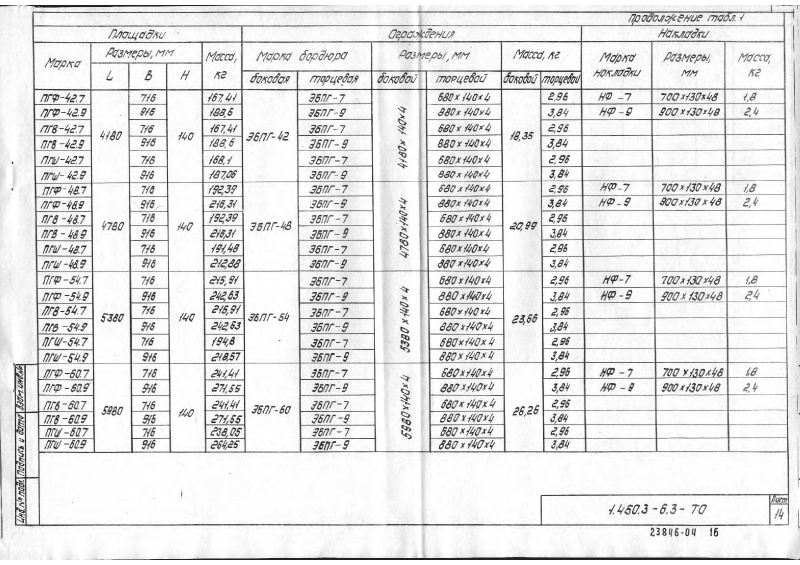 Продолжение табл. 1
Площадки Ограждения Накладки
Марка Размеры, мм Масса, кг Марка бордюра Размеры, мм Масса, кг Марка накладки Размеры, мм Масса, кг
L B H боковая торцевая боковой торцевой боковой торцевой
ПГФ-42.7 4180 716 140 167,41 ЭБПГ-42 ЭБПГ-7 4180×140×4 680×140×4 18,35 2,96 НФ-7 700×130×48 1,8
ПГФ-42.9 916 188,6 ЭБПГ-9 880×140×4 3,84 НФ-9 900×130×48 2,4
ПГВ-42.7 716 167,41 ЭБПГ-7 680×140×4 2,96
ПГВ-42.9 916 188,6 ЭБПГ-9 880×140×4 3,84
ПГШ-42.7 716 168,1 ЭБПГ-7 680×140×4 2,96
ПГШ-42.9 916 187,06 ЭБПГ-9 880×140×4 3,84
ПГФ-48.7 4780 716 140 192,39 ЭБПГ-48 ЭБПГ-7 4780×140×4 680×140×4 20,99 2,96 НФ-7 700×130×48 1,8
ПГФ-48.9 916 216,31 ЭБПГ-9 880×140×4 3,84 НФ-9 900×130×48 2,4
ПГВ-48.7 716 192,39 ЭБПГ-7 680×140×4 2,96
ПГВ-48.9 916 216,31 ЭБПГ-9 880×140×4 3,84
ПГШ-48.7 716 191,48 ЭБПГ-7 680×140×4 2,96
ПГШ-48.9 916 212,88 ЭБПГ-9 880×140×4 3,84
ПГФ-54.7 5380 716 140 215,91 ЭБПГ-54 ЭБПГ-7 5380×140×4 680×140×4 23,66 2,96 НФ-7 700×130×48 1,8
ПГФ-54.9 916 242,63 ЭБПГ-9 880×140×4 3,84 НФ-9 900×130×48 2,4
ПГВ-54.7 716 215,91 ЭБПГ-7 680×140×4 2,96
ПГВ-54.9 916 242,63 ЭБПГ-9 880×140×4 3,84
ПГШ-54.7 716 194,8 ЭБПГ-7 680×140×4 2,96
ПГШ-54.9 916 218,57 ЭБПГ-9 880×140×4 3,84
ПГФ-60.7 5980 716 140 241,41 ЭБПГ-60 ЭБПГ-7 5980×140×4 680×140×4 26,26 2,96 НФ-7 700×130×48 1,8
ПГФ-60.9 916 271,55 ЭБПГ-9 880×140×4 3,84 НФ-9 900×130×48 2,4
ПГВ-60.7 716 241,41 ЭБПГ-7 680×140×4 2,96
ПГВ-60.9 916 271,55 ЭБПГ-9 880×140×4 3,84
ПГШ-60.7 716 238,05 ЭБПГ-7 680×140×4 2,96
ПГШ-60.9 916 264,25 ЭБПГ-9 880×140×4 3,84
Инв. № подл. Подпись и дата Взам. инв. №
1.450.3-6.3-ТО
Лист
14
23846-04 16